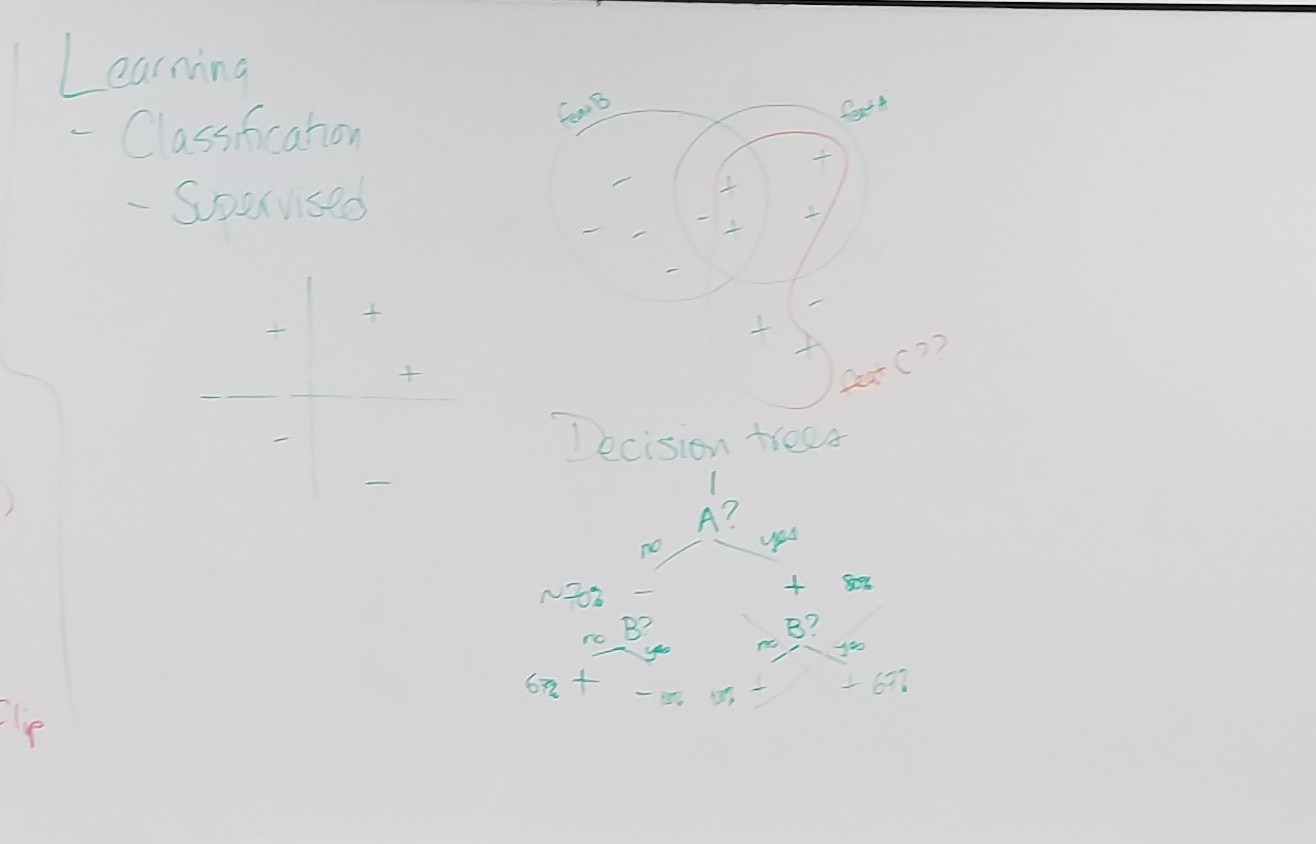 Learning
- Classification
- Supervised
feat B
feat A
- + +
- - - + +
-
+ + -
+ +
+
- -
feat C??
Decision trees
A?
no yes
~70% - + 80%
B? B?
no yes no yes
67% + - 100% 100% + + 67%
Flip